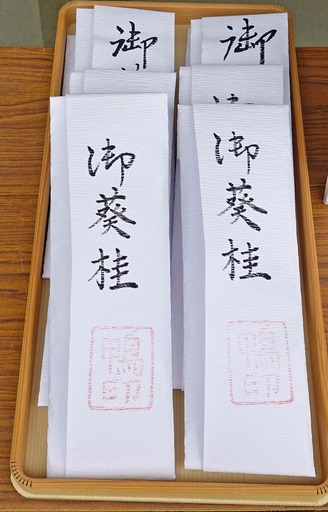 御葵桂
鴨印
御葵桂
鴨印
御
御